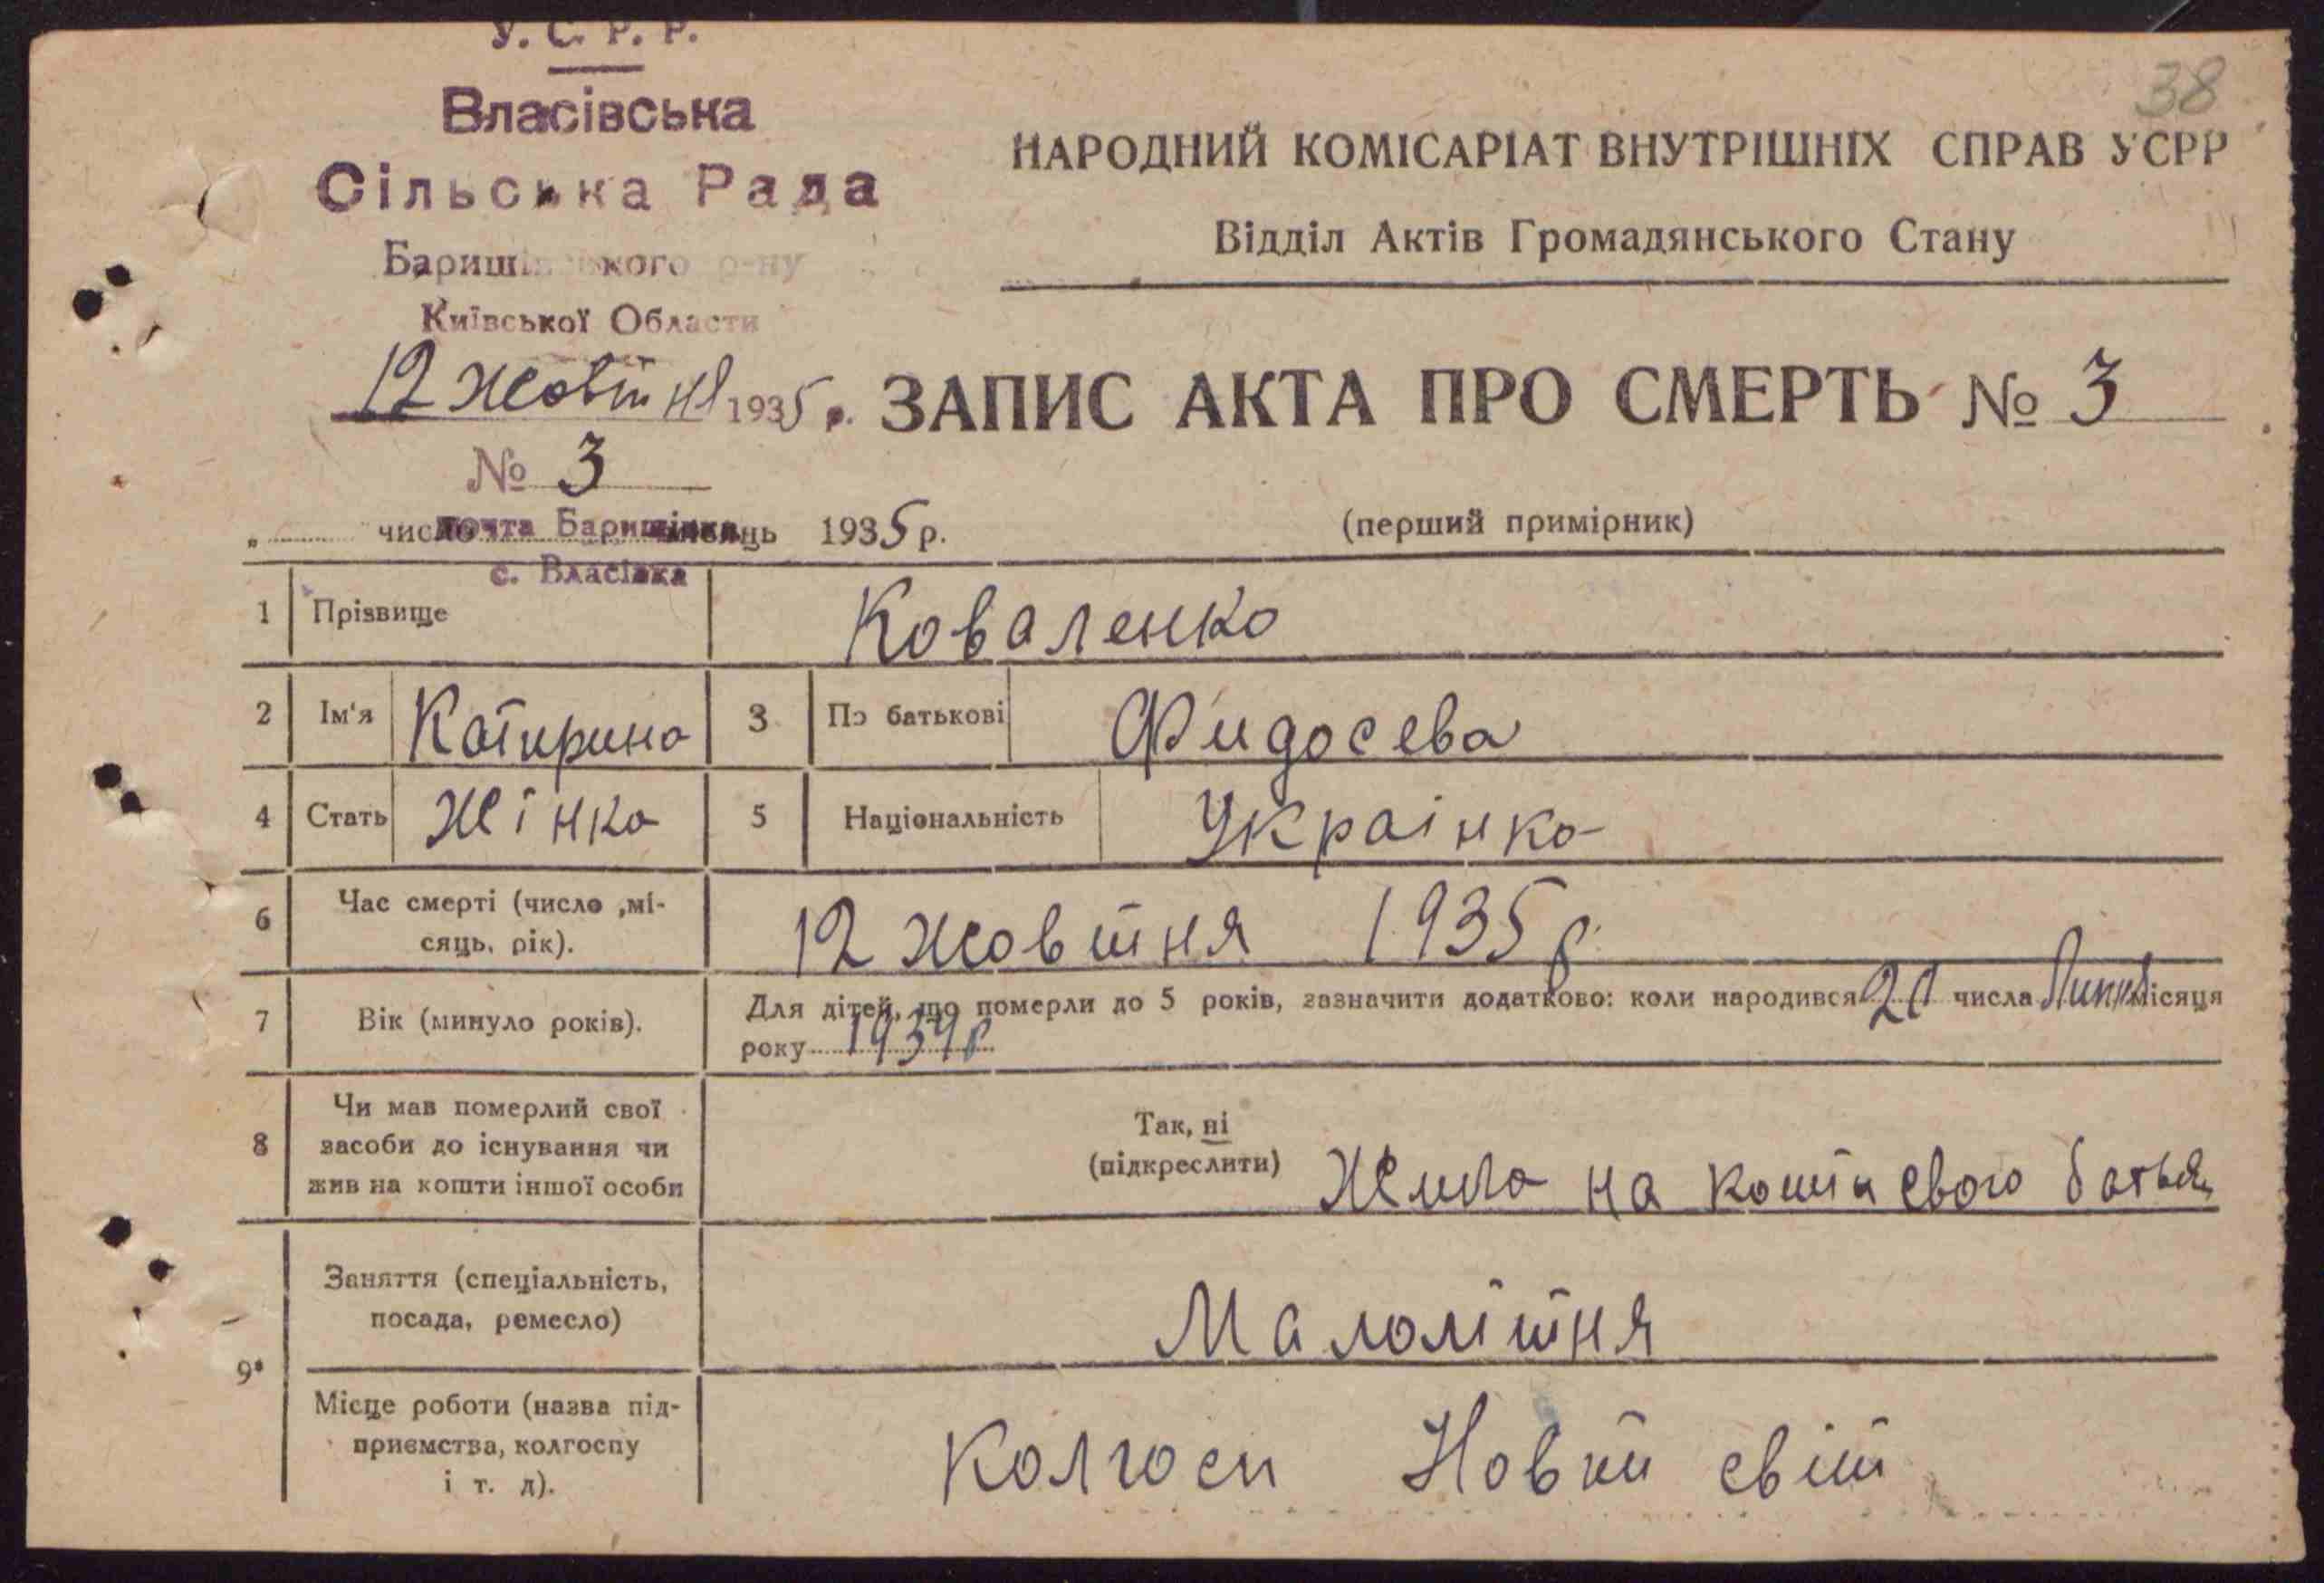 У. С. Р. Р.
Власівська
Сільська Рада
Баришівського р-ну
Київської Области
12 жовтня 1935 р.
№ 3
почта Баришівка
с. Власівка
38
НАРОДНИЙ КОМІСАРІАТ ВНУТРІШНІХ СПРАВ УСРР
Відділ Актів Громадянського Стану
ЗАПИС АКТА ПРО СМЕРТЬ № 3
„ числ місяць 1935 р.
(перший примірник)
1 Прізвище Коваленко
2 Ім'я Катирина 3 По батькові Фидосева
4 Стать Жінка 5 Національність Украінка
6 Час смерті (число ,мі-
сяць, рік). 12 жовтня 1935 р.
7 Вік (минуло років). Для дітей, що померли до 5 років, зазначити додатково: коли народився 20 числа Липня місяця
року 1934 р
8 Чи мав померлий свої
засоби до існування чи
жив на кошти іншої особи
Так, ні
(підкреслити) Жила на кошти свого батька
9 Заняття (спеціальність,
посада, ремесло) Малолітня
Місце роботи (назва під-
приємства, колгоспу
і т. д). Колгосп Новий світ